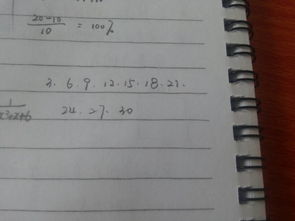 20-10
10 = 100%
3. 6. 9. 12. 15. 18. 21.
24. 27. 30